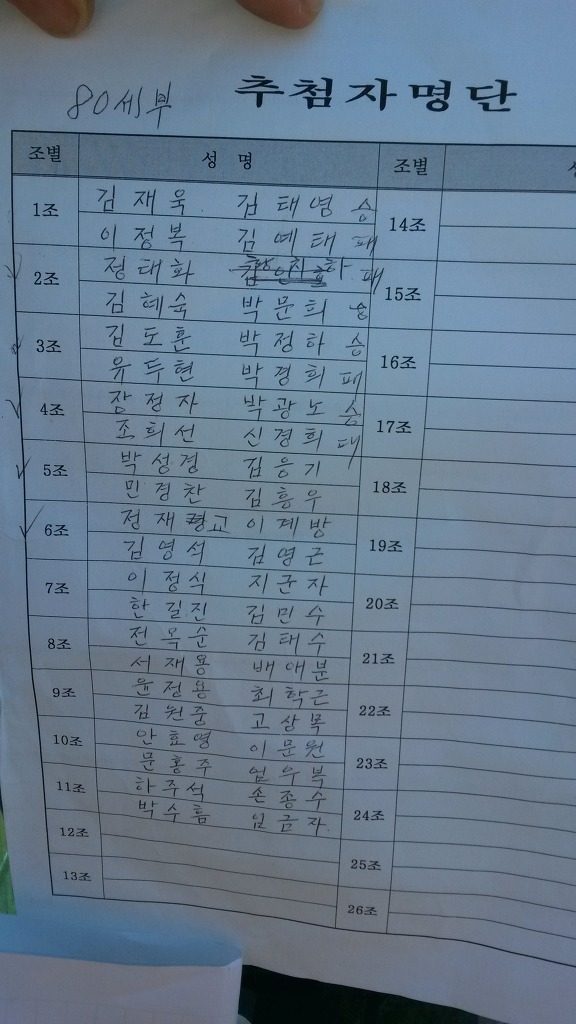 80세부 추첨자명단
조별 성 명 조별
1조 김재욱 김태영 승 14조
이정복 김예태 패
2조 정태화 하 패 15조
김혜숙 박문희 승
3조 김도훈 박정하 승 16조
유두현 박경희 패
4조 정자 박광노 승 17조
조희선 신경희 패
5조 박성경 김응기 18조
민경찬 김흥우
6조 정재 교 이계방 19조
김영석 김영근
7조 이정식 지군자 20조
한길진 김민수
8조 전옥순 김태수 21조
서재용 배애분
9조 윤정용 최학근 22조
김원중 고상복
10조 안효영 이문원 23조
문홍주 엄우복
11조 하주석 손종수 24조
박수흠 임금자
12조
25조
13조
26조